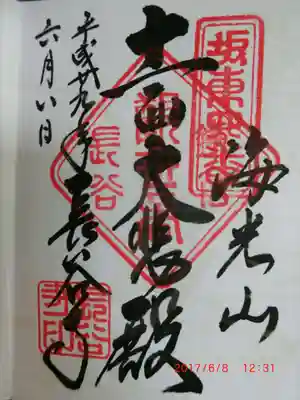 海光山
十一面大悲殿
長谷寺
平成廿九年
六月八日
坂東第四番
長谷
2017/6/8 12:31